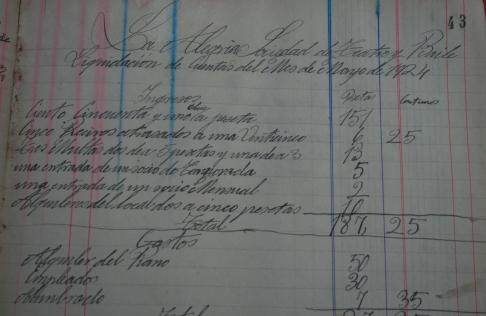 43
La Alegria Sociedad de Teatro y Baile
Liquidación de Cuentas del Mes de Mayo de 1924
Ingresos Pesetas Centimos
Ciento Cincuenta y uno a peseta 151
Cinco Recivos atrasados a una Veinticinco 6 25
tres Multas dos de a 5 pesetas y una de a 3 13
una entrada de un socio de Temporada 5
una entrada de un socio Mensual 2
Alquileres del local dos a cinco pesetas 10
Total 187 25
Gastos
Alquiler del Piano 50
Empleados 30
Alumbrado 7 35
Total